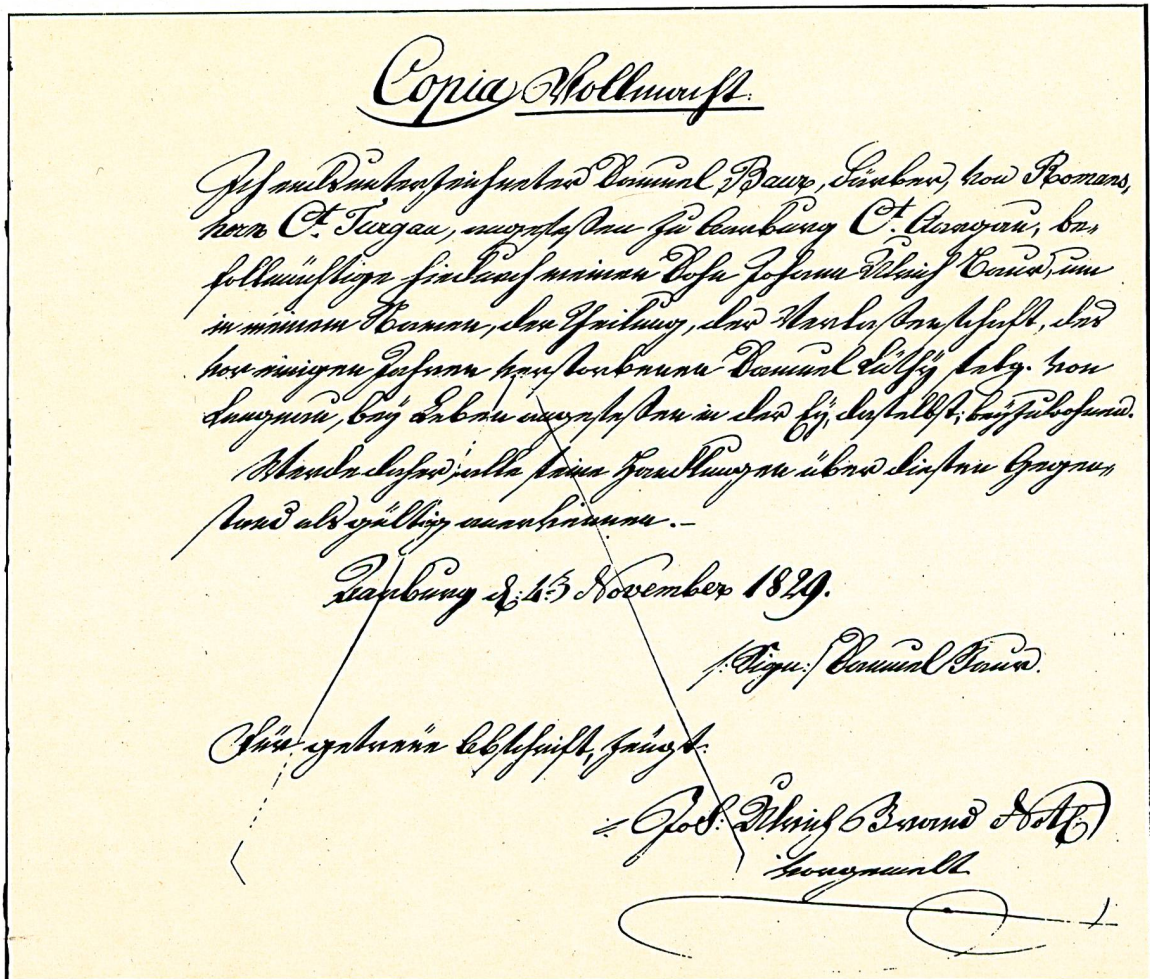 Copia Vollmacht.
Ich endsunterzeichneter Samuel Baur, Färber, von Romans,
horn Ct. Turgau, angesessen zu Aarburg Ct. Aargau, be,
follmächtige hiedurch meinen Sohn Johann Ulrich Baur, um
in meinem Namen, der Theilung, der Verlassenschaft, des
vor einigen Jahren verstorbenen Samuel Lüthy selg. von
Langnau, bey Leben angesessen in der Ey, daselbst; beyzuwohnen.
Werde daher alle seine Handlungen über diesten Gegen,
stand als gültig anerkennen.–
Aarburg d. November 1829.
/:Sign:/ Samuel Baur.
Für getreüe Abschrift, zeügt:
Joh: Ulrich Brand Not:
vorgemelt